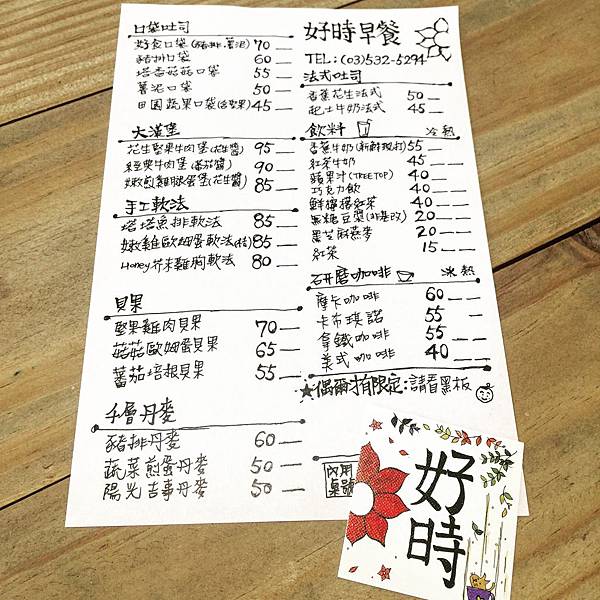 口袋吐司
好食口袋(豬排.薯泥) 70
豬排口袋 60
塔香菇菇口袋 55
薯泥口袋 50
田園蔬果口袋(含堅果) 45
大漢堡
花生堅果牛肉堡(花生醬) 95
經典牛肉堡(蕃茄醬) 90
嫩煎雞腿蛋堡(花生醬) 85
手工軟法
塔塔魚排軟法 85
嫩雞歐姆蛋軟法 85
Honey芥末雞胸軟法 80
貝果
堅果雞肉貝果 70
菇菇歐姆蛋貝果 65
蕃茄培根貝果 55
千層丹麥
豬排丹麥 60
蔬菜煎蛋丹麥 50
陽光吉事丹麥 50
好時早餐
TEL:(03)532-5294
法式吐司
香蕉花生法式 50
起士牛奶法式 45
飲料 冷 熱
香蕉牛奶(新鮮現打) 55
紅茶牛奶 45
蘋果汁(TREE TOP) 40
巧克力飲 40
鮮檸檬紅茶 40
無糖豆漿(非基改) 20
黑芝麻燕麥 20
紅茶 15
研磨咖啡 冰 熱
摩卡咖啡 60
卡布琪諾 55
拿鐵咖啡 55
美式咖啡 40
★偶爾才有限定:請看黑板
內用
桌號
好時